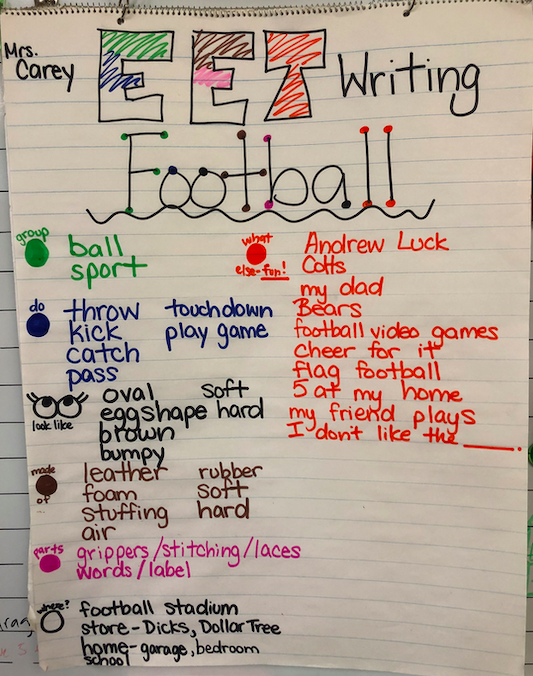 Mrs.
Carey
EET Writing
Football
group
ball
sport
do
throw touchdown
kick play game
catch
pass
look like
oval soft
eggshape hard
brown
bumpy
made of
leather rubber
foam soft
stuffing hard
air
parts
grippers/stitching/laces
words/label
where?
football stadium
store-Dicks, Dollar Tree
home-garage, bedroom
school
what
else-fun!
Andrew Luck
Colts
my dad
Bears
football video games
cheer for it
flag football
5 at my home
my friend plays
I don't like the ______.